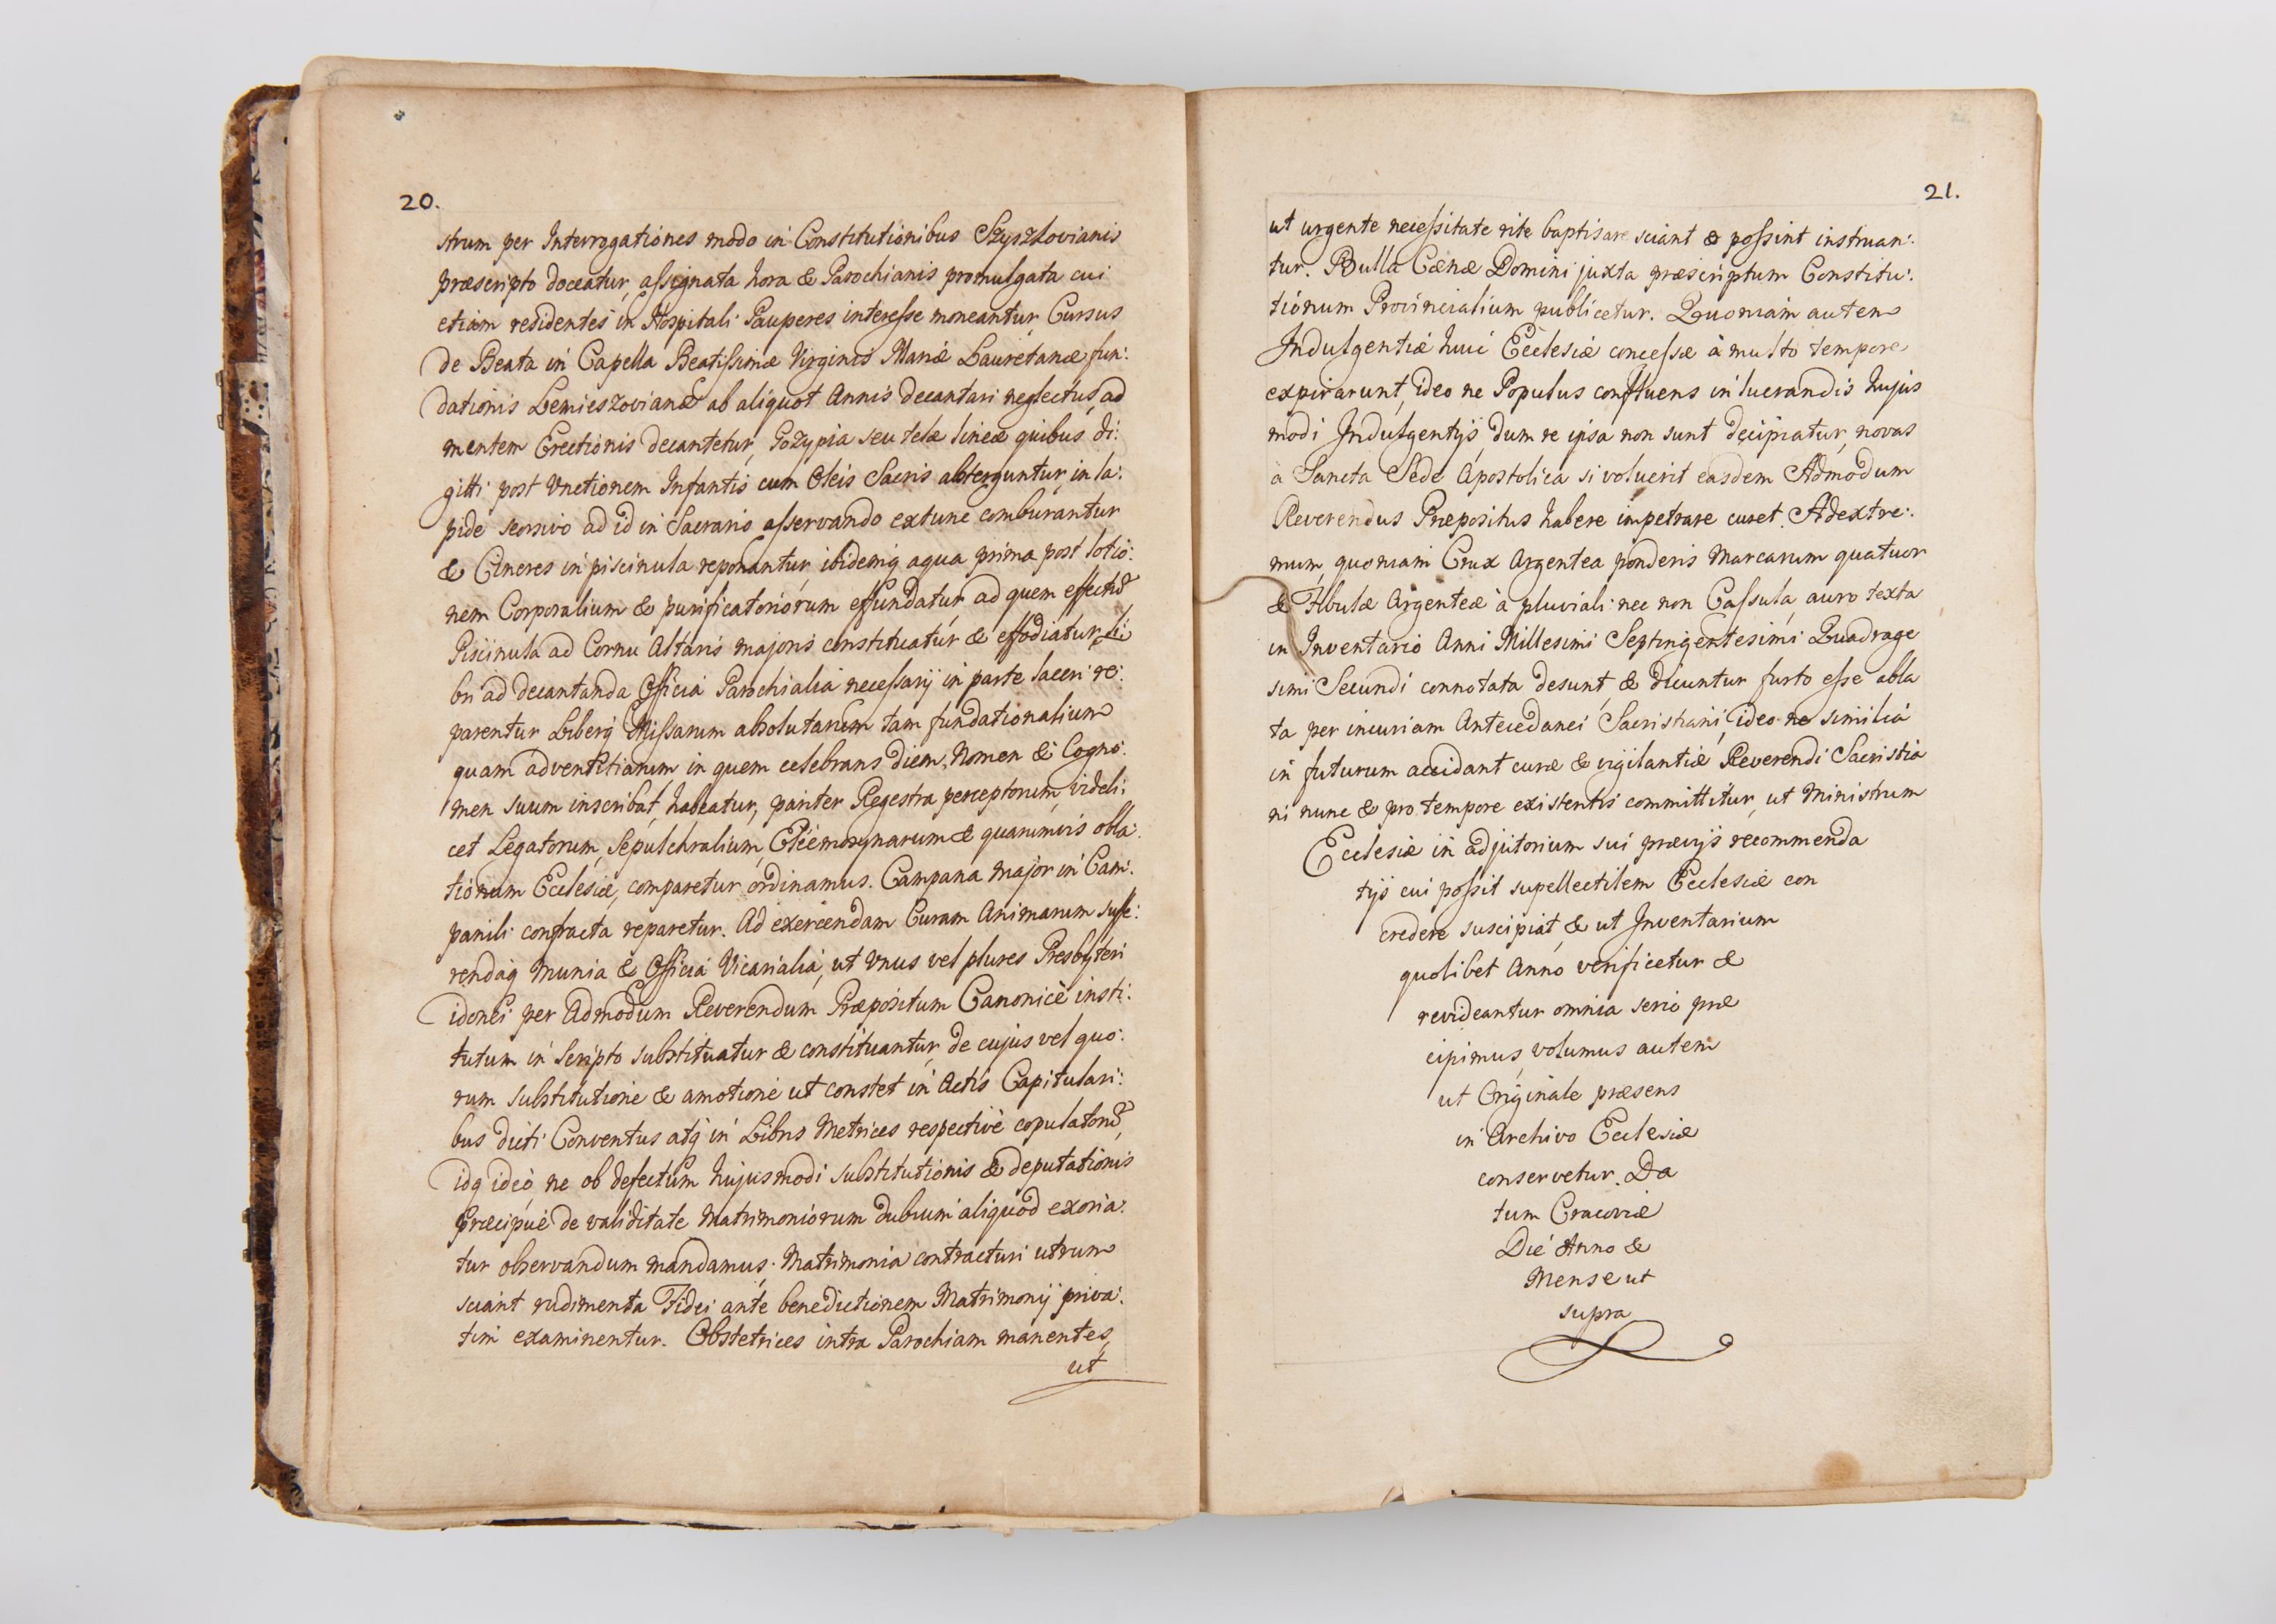 20.
strum per Interrogationes modo in Constitutionibus Szyszkovianis
præscripto doceatur, assignata hora & Parochianis promulgata cui
etiam residentes in Hospitali Pauperes interesse moneantur, Cursus
de Beata in Capella Beatissimæ Virginis Mariæ Lauretanæ fun:
dationis Lemieszovianæ ab aliquot Annis decantari neglectus, ad
mentem Erectionis decantetur, Gozypia seu telæ lineæ quibus di:
gitti post Unctionem Infantis cum Oleis Sacris absterguntur, in la:
pide seorsivo ad id in Sacrario asservando extunc comburantur
& Cineres in piscinula reponantur, ibidemq aqua prima post lotio:
nem Corporalium & purificatoriorum effundatur, ad quem effectū
Piscinula ad Cornu Altaris majoris constituatur & effodiatur, Li
bri ad decantanda Officia Parochialia necessarij in parte laceri re:
parentur Liberq Missarum absolutarum tam fundationalium
quam adventitiarum in quem celebrans diem, Nomen & Cogno:
men suum inscribat, habeatur, pariter Regestra perceptorum, videli:
cet Legatorum, Sepulchralium, Eleemosynarum & quarumvis obla:
tionum Ecclesiæ, comparetur, ordinamus. Campana major in Cam:
panili confracta reparetur. Ad exercendam Curam Animarum suffe:
rendaq munia & Officia Vicarialia, ut Unus vel plures Presbyteri
idonei per Admodum Reverendum Præpositum Canonicè insti:
tutum in Scripto substituatur & constituantur, de cujus vel quo:
rum substitutione & amotione ut constet in Actis Capitulari:
bus dicti Conventus atq in Libris Metrices respectivè copulatorū,
idq ideo, ne ob defectum hujusmodi substitutionis & deputationis
præcipuè de validitate Matrimoniorum dubium aliquod exoria:
tur observandum mandamus. Matrimonia contracturi utrum
sciant rudimenta Fidei ante benedictionem Matrimonij priva:
tim examinentur. Obstetrices intra Parochiam manentes,
ut
21.
ut urgente necessitate rite baptisare sciant & possint instruan:
tur. Bulla Cænæ Domini juxta præscriptum Constitu:
tionum Provincialium publicetur. Quoniam autem
Indulgentiæ huic Ecclesiæ concessæ à multo tempore
expirarunt, ideo ne Populus confluens in lucrandis hujus
modi Indulgentijs dum re ipsa non sunt decipiatur, novas
à Sancta Sede Apostolica si voluerit easdem Admodum
Reverendus Præpositus habere impetrare curet. Ad extre:
mum, quoniam Crux Argentea ponderis Marcarum quatuor
& Fibulæ Argenteæ à pluviali nec non Cassula, auro texta
in Inventario Anni Millesimi Septingentesimi Quadrage
simi Secundi connotata desunt, & dicuntur furto esse abla
ta per incuriam Antecedanei Sacristiani, ideo ne similia
in futurum accidant curæ & vigilantiæ Reverendi Sacristia
ni nunc & pro tempore existentis committitur, ut Ministrum
Ecclesiæ in adjutorium sui prævijs recommenda
tijs cui possit supellectilem Ecclesiæ con
credere suscipiat, & ut Inventarium
quolibet Anno verificetur &
revideantur omnia serio præ
cipimus, volumus autem
ut Originale præsens
in Archivo Ecclesiæ
conservetur. Da
tum Cracoviæ
Die Anno &
Mense ut
supra